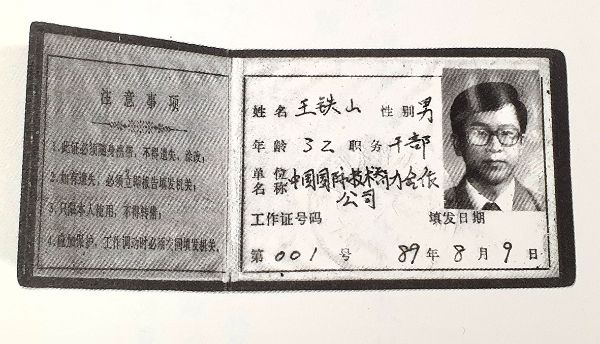 注意事项
1.此证必须随身携带,不得遗失、涂改;
2.如有遗失,必须立即报告填发机关;
3.只限本人使用,不得转借;
4.应加保护,工作调动时必须交回填发机关。
姓名 王铁山 性别 男
年龄 32 职务 干部
单位名称 中国国际技术智力合作公司
工作证号码 填发日期
第001号 89年8月9日